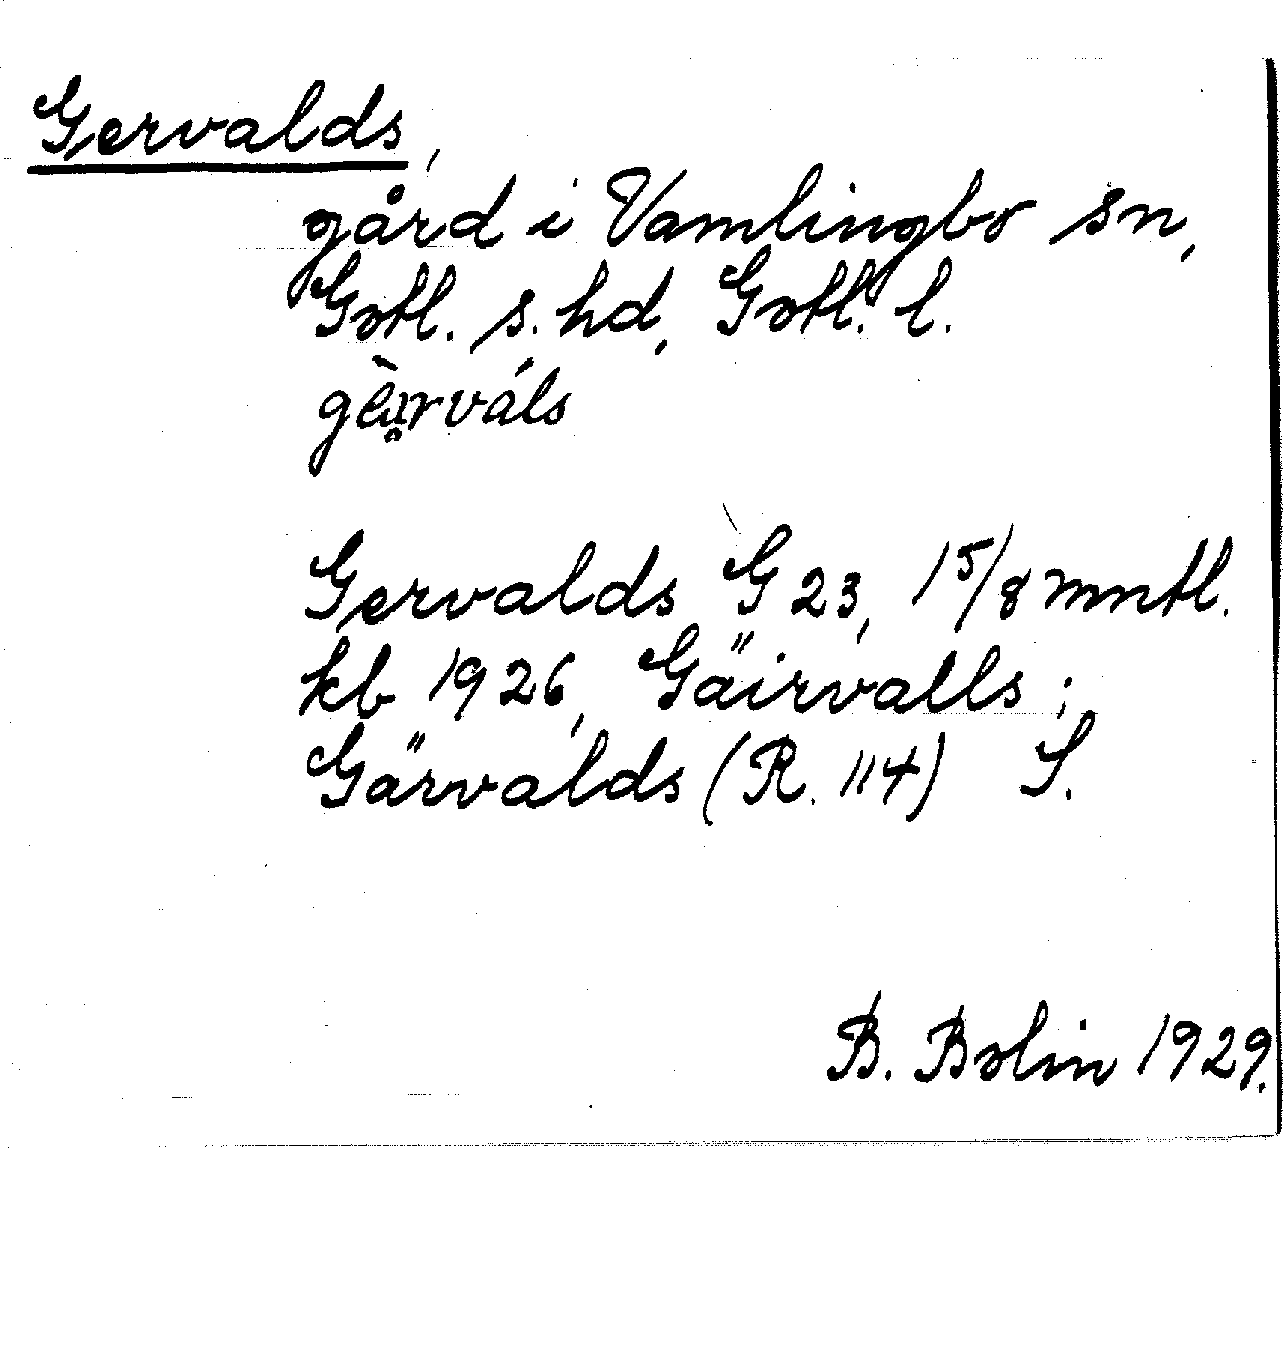 Gervalds,
gård i Vamlingbo sn,
Gotl. s. hd, Gotl. l.
gèı̥rváls
Gervalds G 23, 1 5/8 mntl.
kb 1926, Gäirvalls;
Gärvalds (R. 114) S.
B. Bolin 1929.